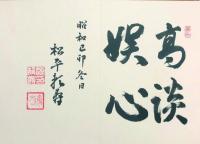 高談
娯心
昭和己卯冬日
松平